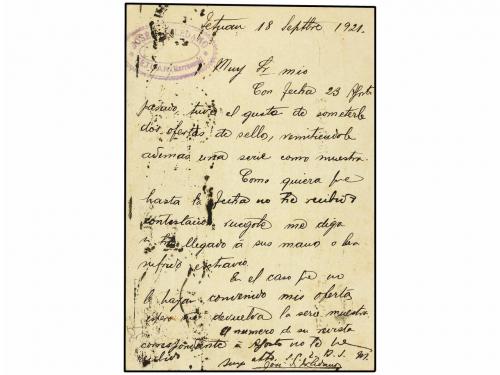 Tetuan 18 Septbre 1921.
Muy Sr mio
Con fecha 23 Agosto
pasado, tuve el gusto de someterle
dos ofertas de sello, remitiendole
ademas una serie como muestra.
Como quiera que
hasta la fecha no he recibido
contestacion, ruegole me diga
si ha llegado á sus manos o han
sufrido extravio.
En el caso que no
le hayan convenido mis oferta
espero me devuelva la serie muestra
El numero de su revista
correspondiente á Agosto no lo he
recibido